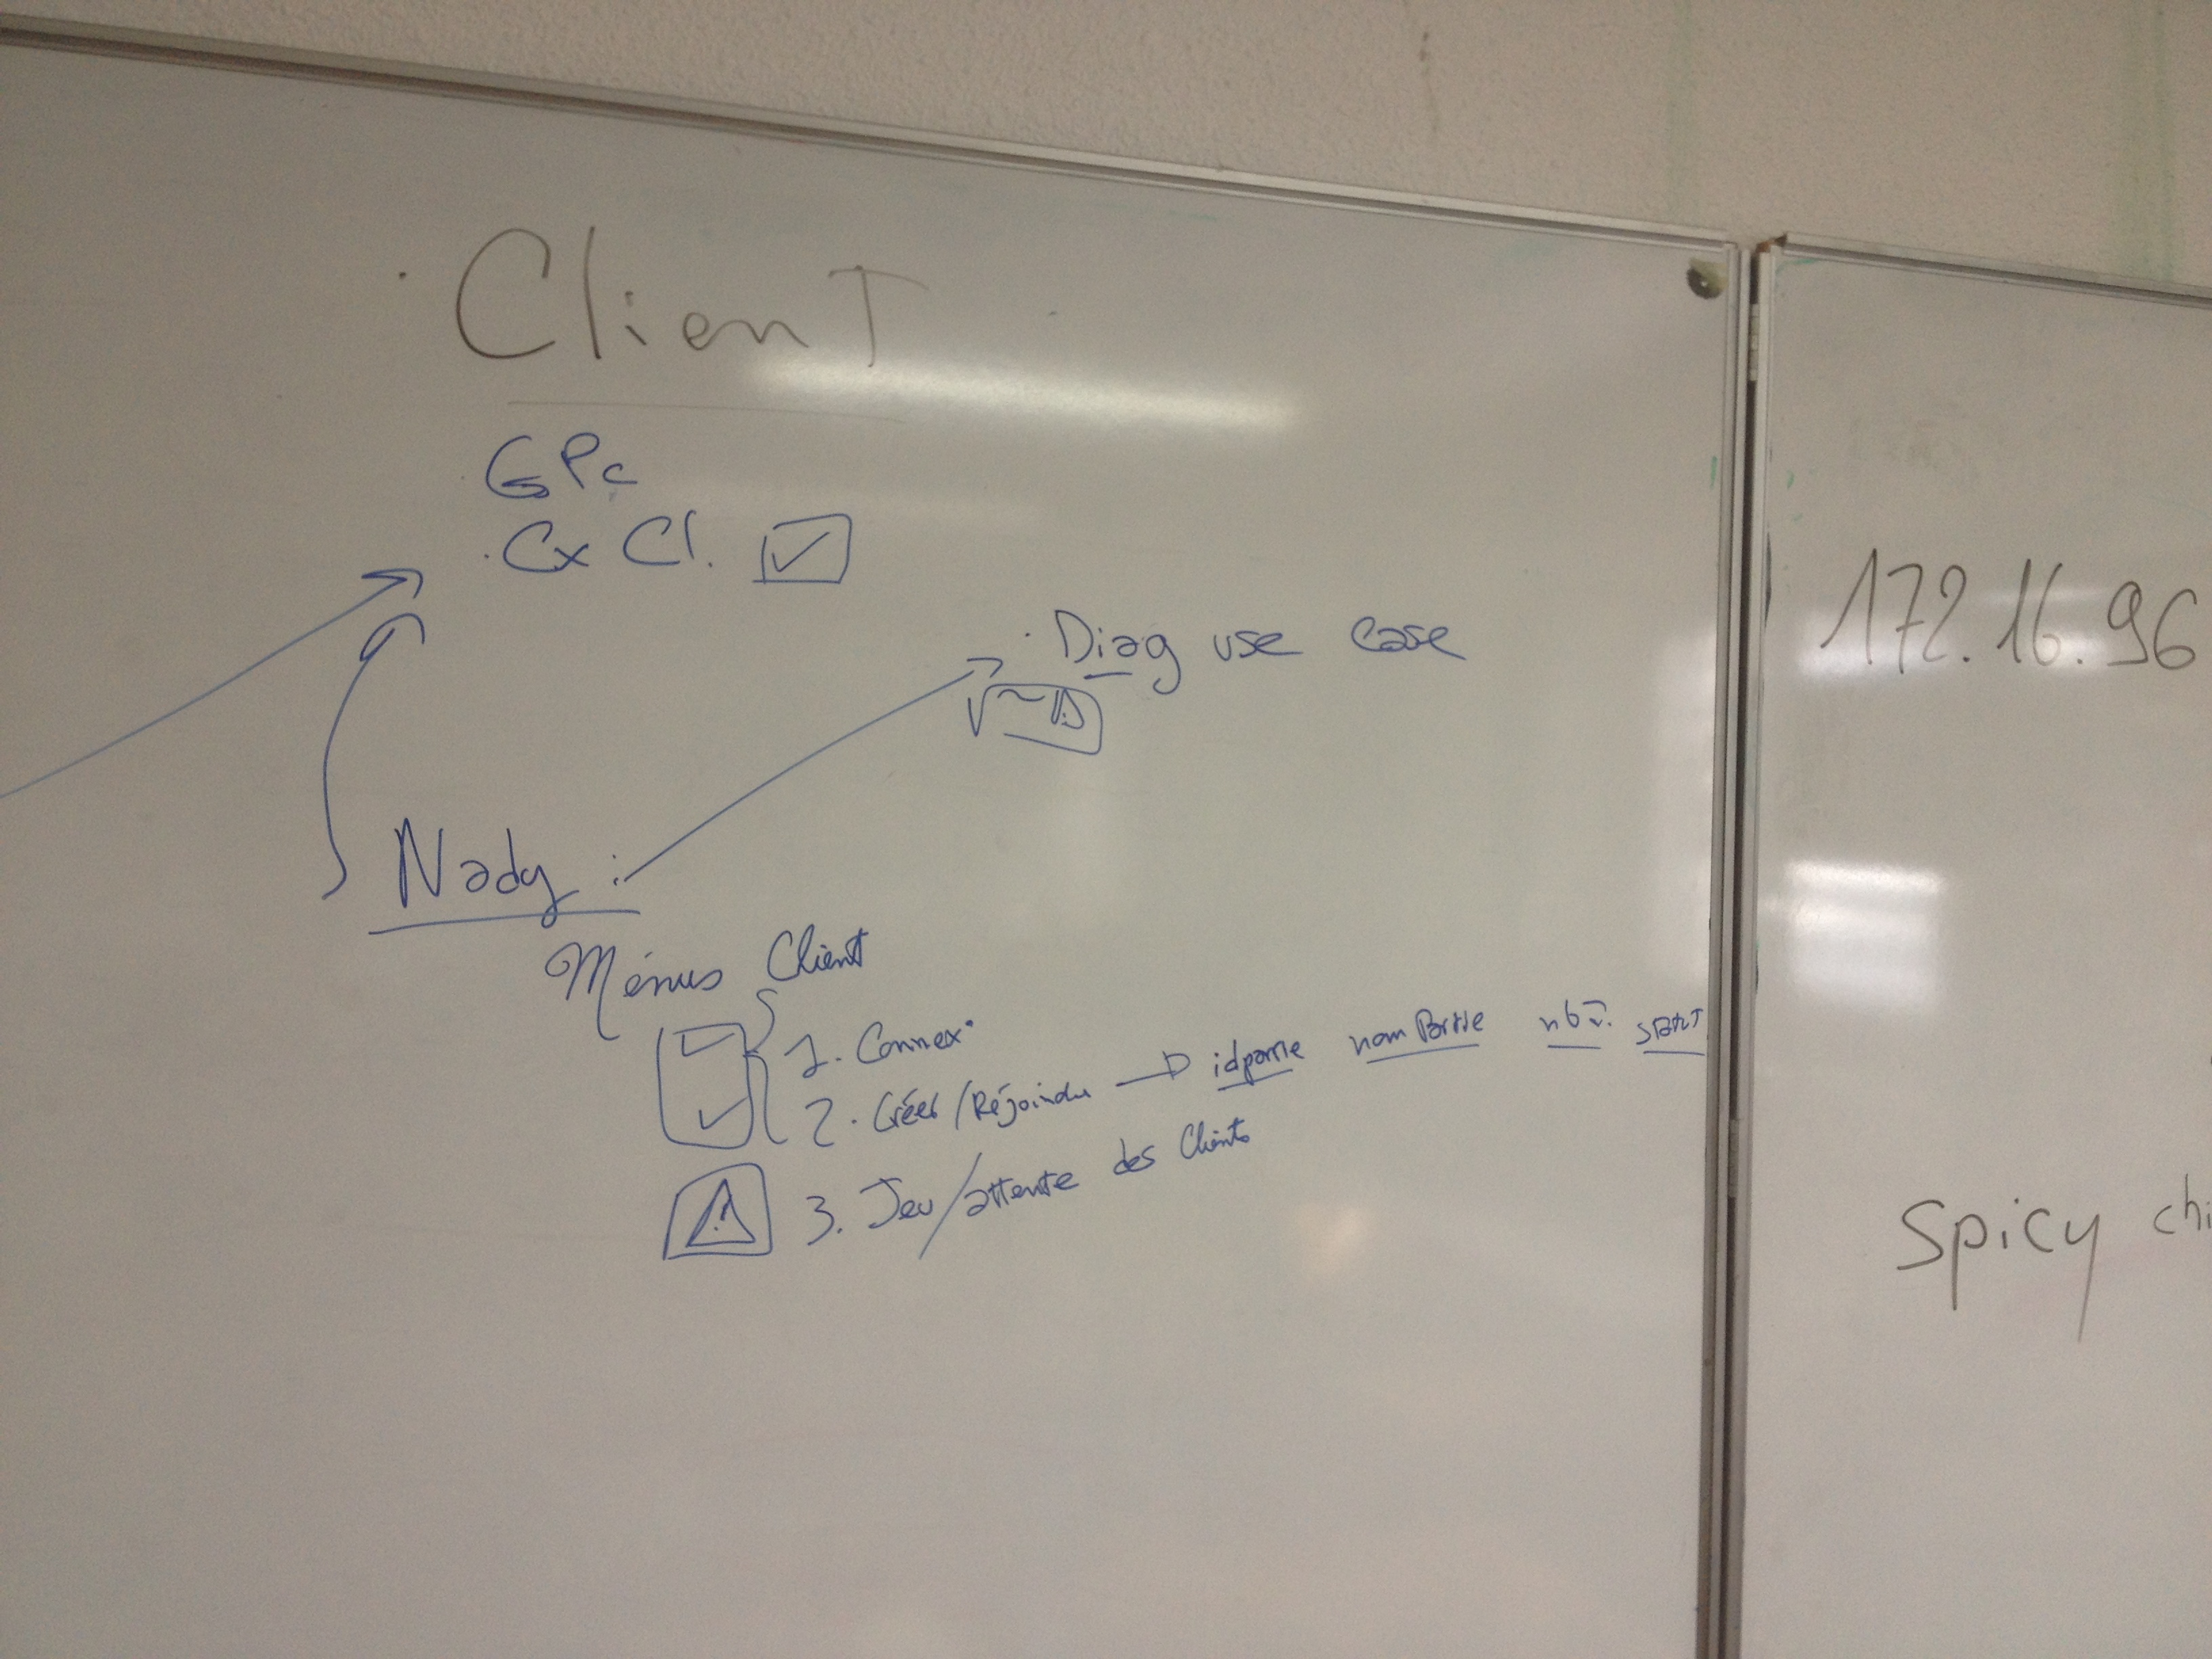 Client
GPc
. Cx Cl.
. Diag use case
Nady :
Ménus Client
1. Connex°
2. Créer / Réjoindre → idpartie nomPartie nbJ. START
3. Jeu / attente des Clients
172.16.96
Spicy chi